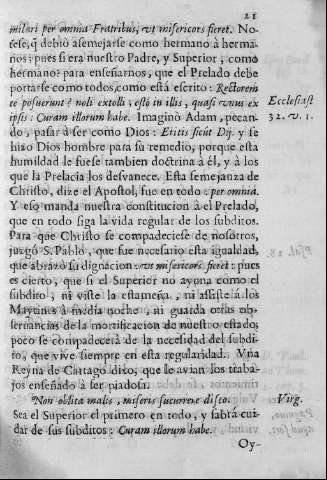 21
milari per omnia Fratribus, vt misericors fieret. No-
tese, q̃ debiò asemejarse como hermano à herma-
nos; pues si era nuestro Padre, y Superior, como
hermano? para enseñarnos, que el Prelado debe
portarse como todos, como está escrito: Rectorem
te posuerunt? noli extolli; esto in illis, quasi vnus ex
ipsis: Curam illorum habe. Imaginò Adam, pecan-
do, pasar à ser como Dios: Eritis sicut Dij. y se
hizo Dios hombre para su remedio, porque esta
humildad le fuese tambien doctrina à él, y à los
que la Prelacia los desvanece. Esta semejanza de
Christo, dize el Apostol, fue en todo: per omnia.
Y eso manda nuestra constitucion à el Prelado,
que en todo siga la vida regular de los subditos.
Para que Christo se compadeciese de nosotros,
juzgò S. Pablo, que fue necesario esta igualdad,
que abrazò su dignacion: vt misericors fieret: pues
es cierto, que si el Superior no ayuna como el
subdito, ni viste la estameña, ni assiste à los
Maytines à media noche, ni guarda otras ob-
servancias de la mortificacion de nuestro estado,
poco se compadecerà de la necesidad del subdi-
to, que vive siempre en esta regularidad. Vna
Reyna de Cartago dixo, que le avian los traba-
jos enseñado à ser piadosa.
Non oblita malis, miseris sucurrere disco.
Sea el Superior el primero en todo, y sabrà cui-
dar de sus subditos: Curam illorum habe.
Oy-
Ecclesiast
32. v. 1.
Virg.